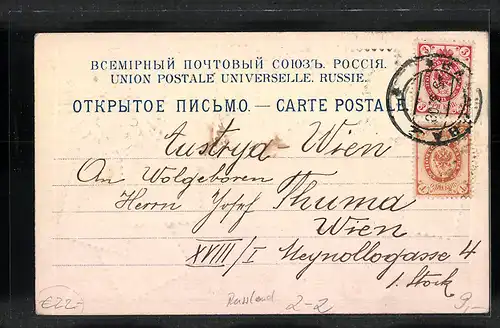 ВСЕМІРНЫЙ ПОЧТОВЫЙ СОЮЗЪ. РОССІЯ.
UNION POSTALE UNIVERSELLE. RUSSIE.
ОТКРЫТОЕ ПИСЬМО. — CARTE POSTALE.
3 3
Austrya Wien
An Wolgeboren
Herrn Josef Thuma
Wien
XVIII/I Meynollogasse 4
1. Stock
€22.-
Russland
2-2
9,-